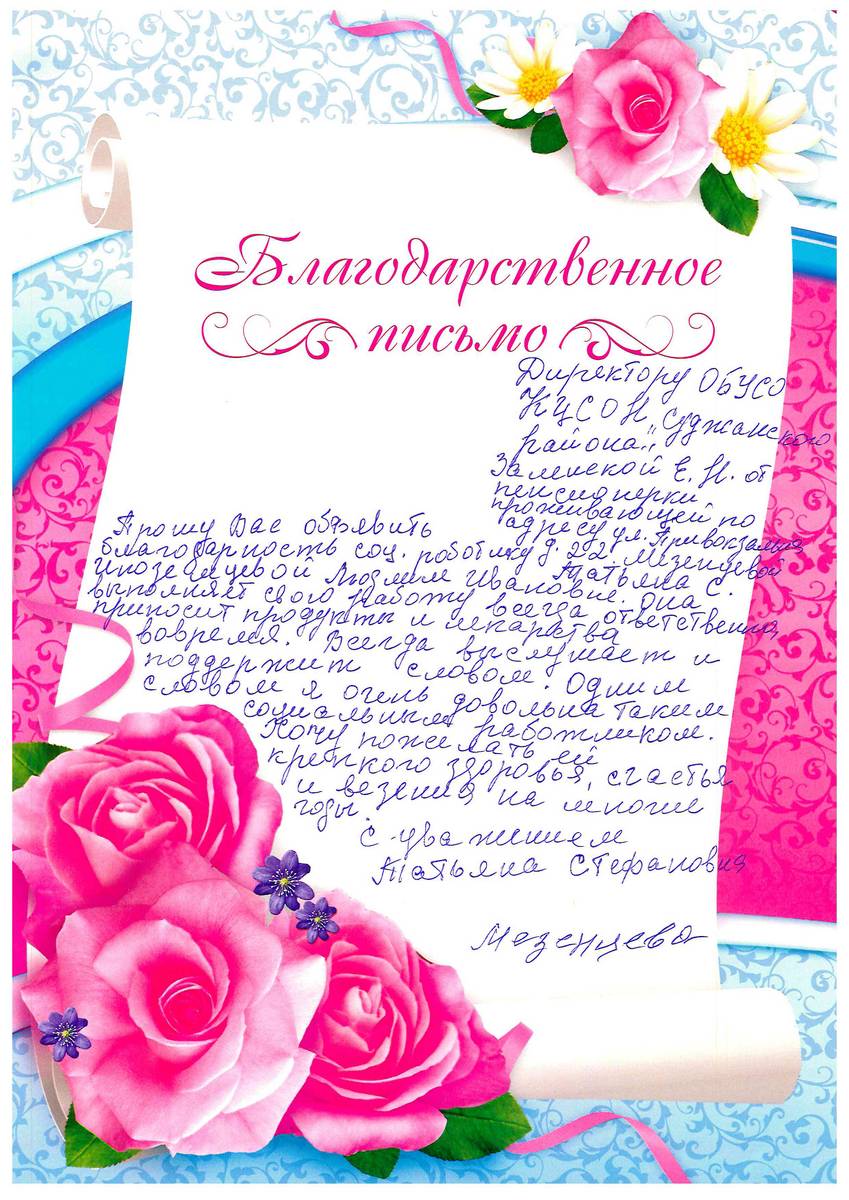 Благодарственное
письмо
Директору ОБУСО
КЦСОН „Суджанского
района"
Заминской Е. Н. от
пенсионерки
проживающей по
адресу ул. Привокзальная
д. 22 Мезенцевой
Татьяна С.
Прошу Вас объявить
благодарность соц. роботнику
Инозенцевой Людмил Ивановне. Она
выполняет свою работу всегда ответственно,
приносит продукты и лекарства
вовремя. Всегда выслушает и
поддержит словом. Одним
словом я очень довольна таким
социальным работником.
Хочу пожелать ей
крепкого здоровья, счастья
и везения на многие
годы.
С уважением
Татьяна Стефановна
Мезенцева